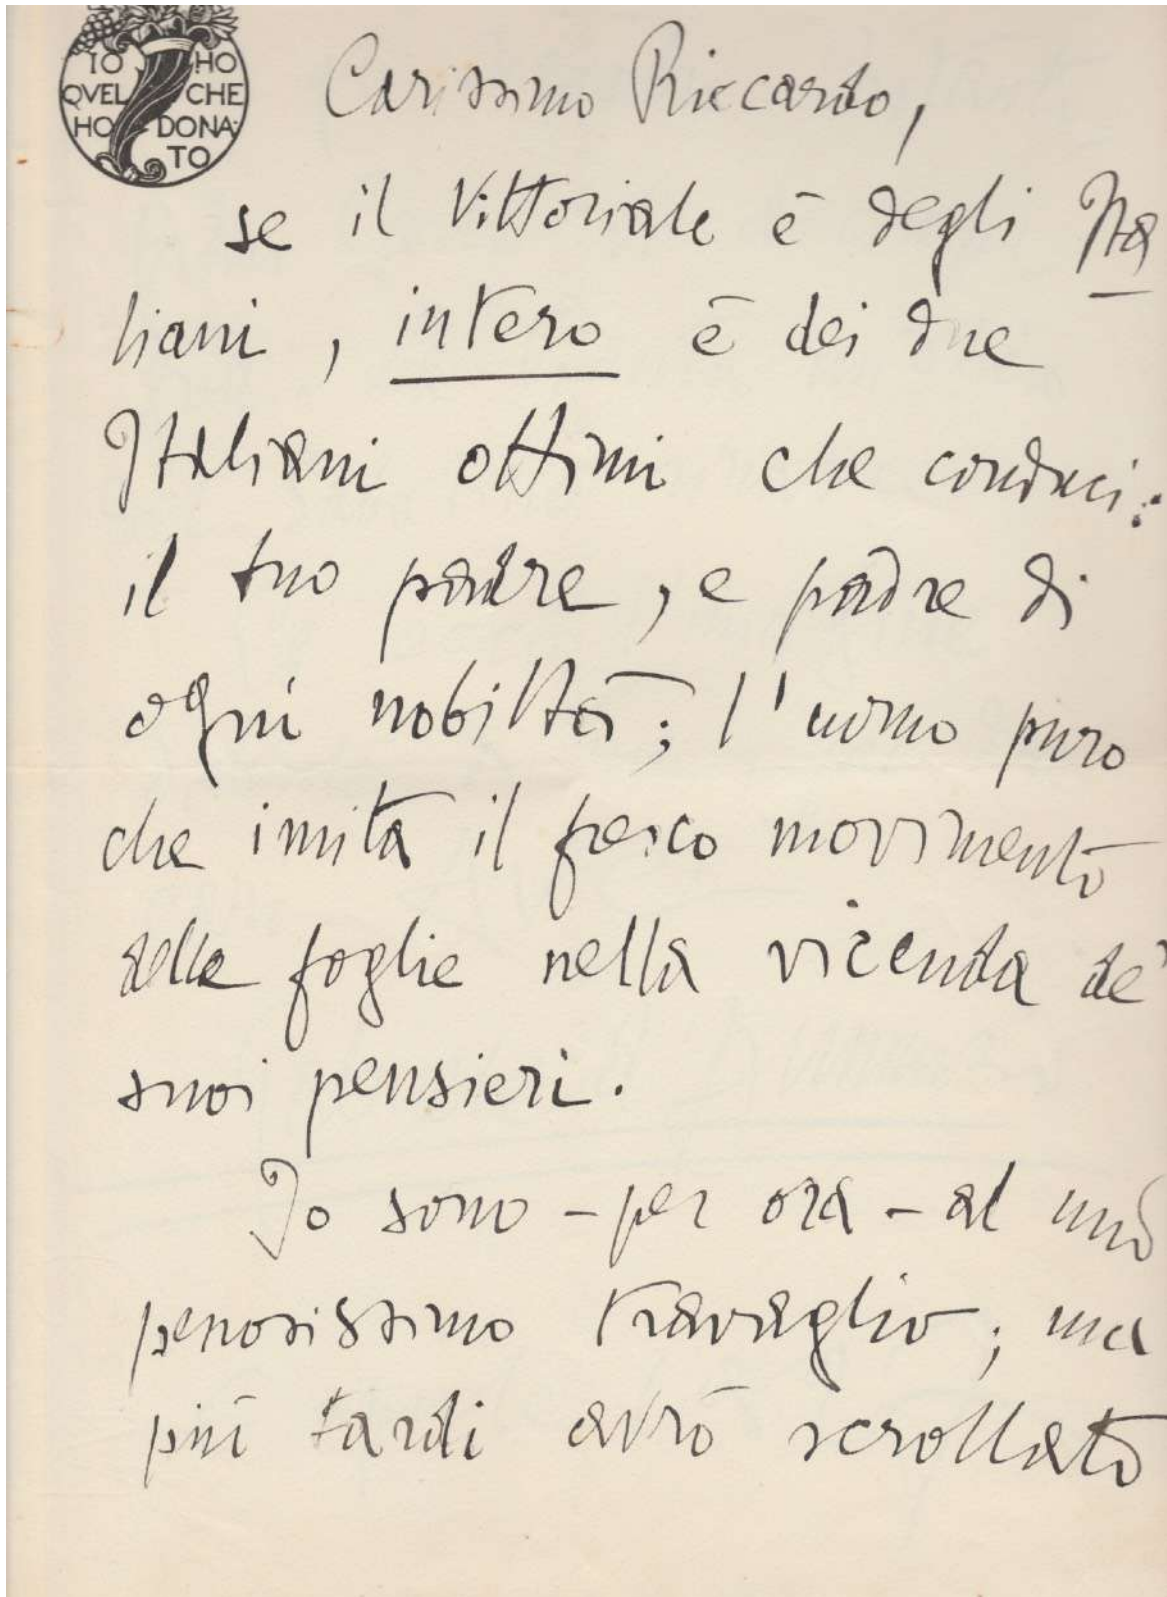 IO HO
QVEL CHE
HO DONA-
TO
Carissimo Riccardo,
se il Vittoriale è degli Ita
liani, intero è dei due
Italiani ottimi che conduci:
il tuo padre, e padre di
ogni nobiltà; l'uomo puro
che imita il fresco movimento
delle foglie nella vicenda de'
suoi pensieri.
Io sono - per ora - al mio
penosissimo travaglio; ma
più tardi avrò scrollato